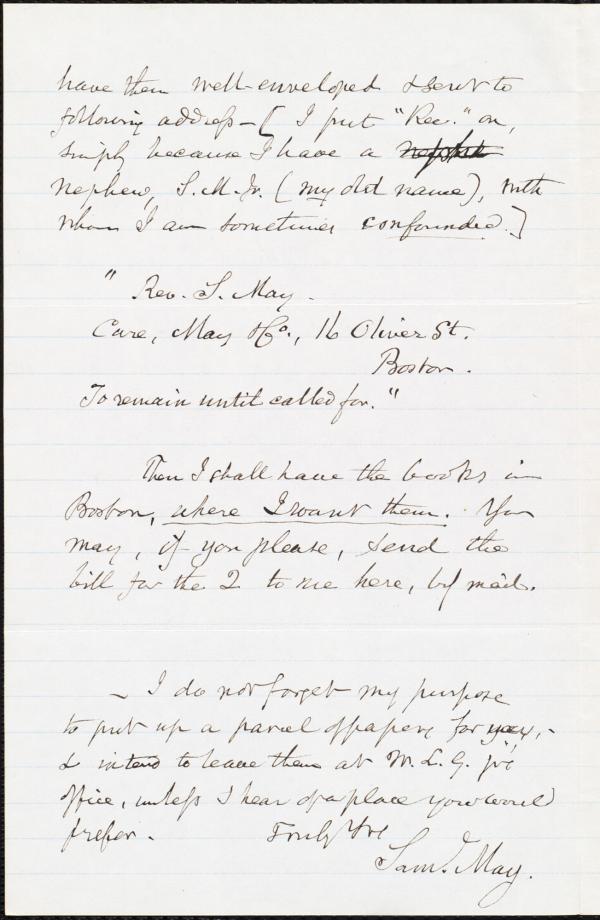 have them well-enveloped & sent to
following address—[ I put "Rev." on,
simply because I have a
Nephew, S. M. Jr. (my old name), with
whom I am sometimes confounded.]
" Rev. S. May.
Care, May & Co., 16 Oliver St.
Boston.
To remain until called for."
Then I shall have the books in
Boston, where I want them. You
may, if you please, send the
bill for the 2 to me here, by mail.
– I do not forget my purpose
to put up a parcel of papers for you, -
& intend to leave them at W. L. G. jr's
office, unless I hear of a place you would
prefer. Truly Yrs
Saml. May.